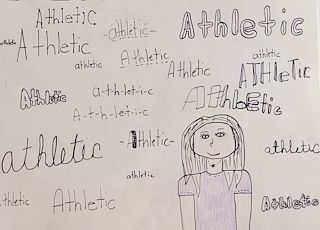 Athletic
-athletic-
Athletic
athletic
Athletic
Athletic
athletic
athletic
Athletic
ATHLeTic
Athletic
a-th-let-i-c
Athletic
A-t-h-l-e-t-i-c
athletic
-Athletic-
athletic
athletic
athletic
Athletic
Athletic